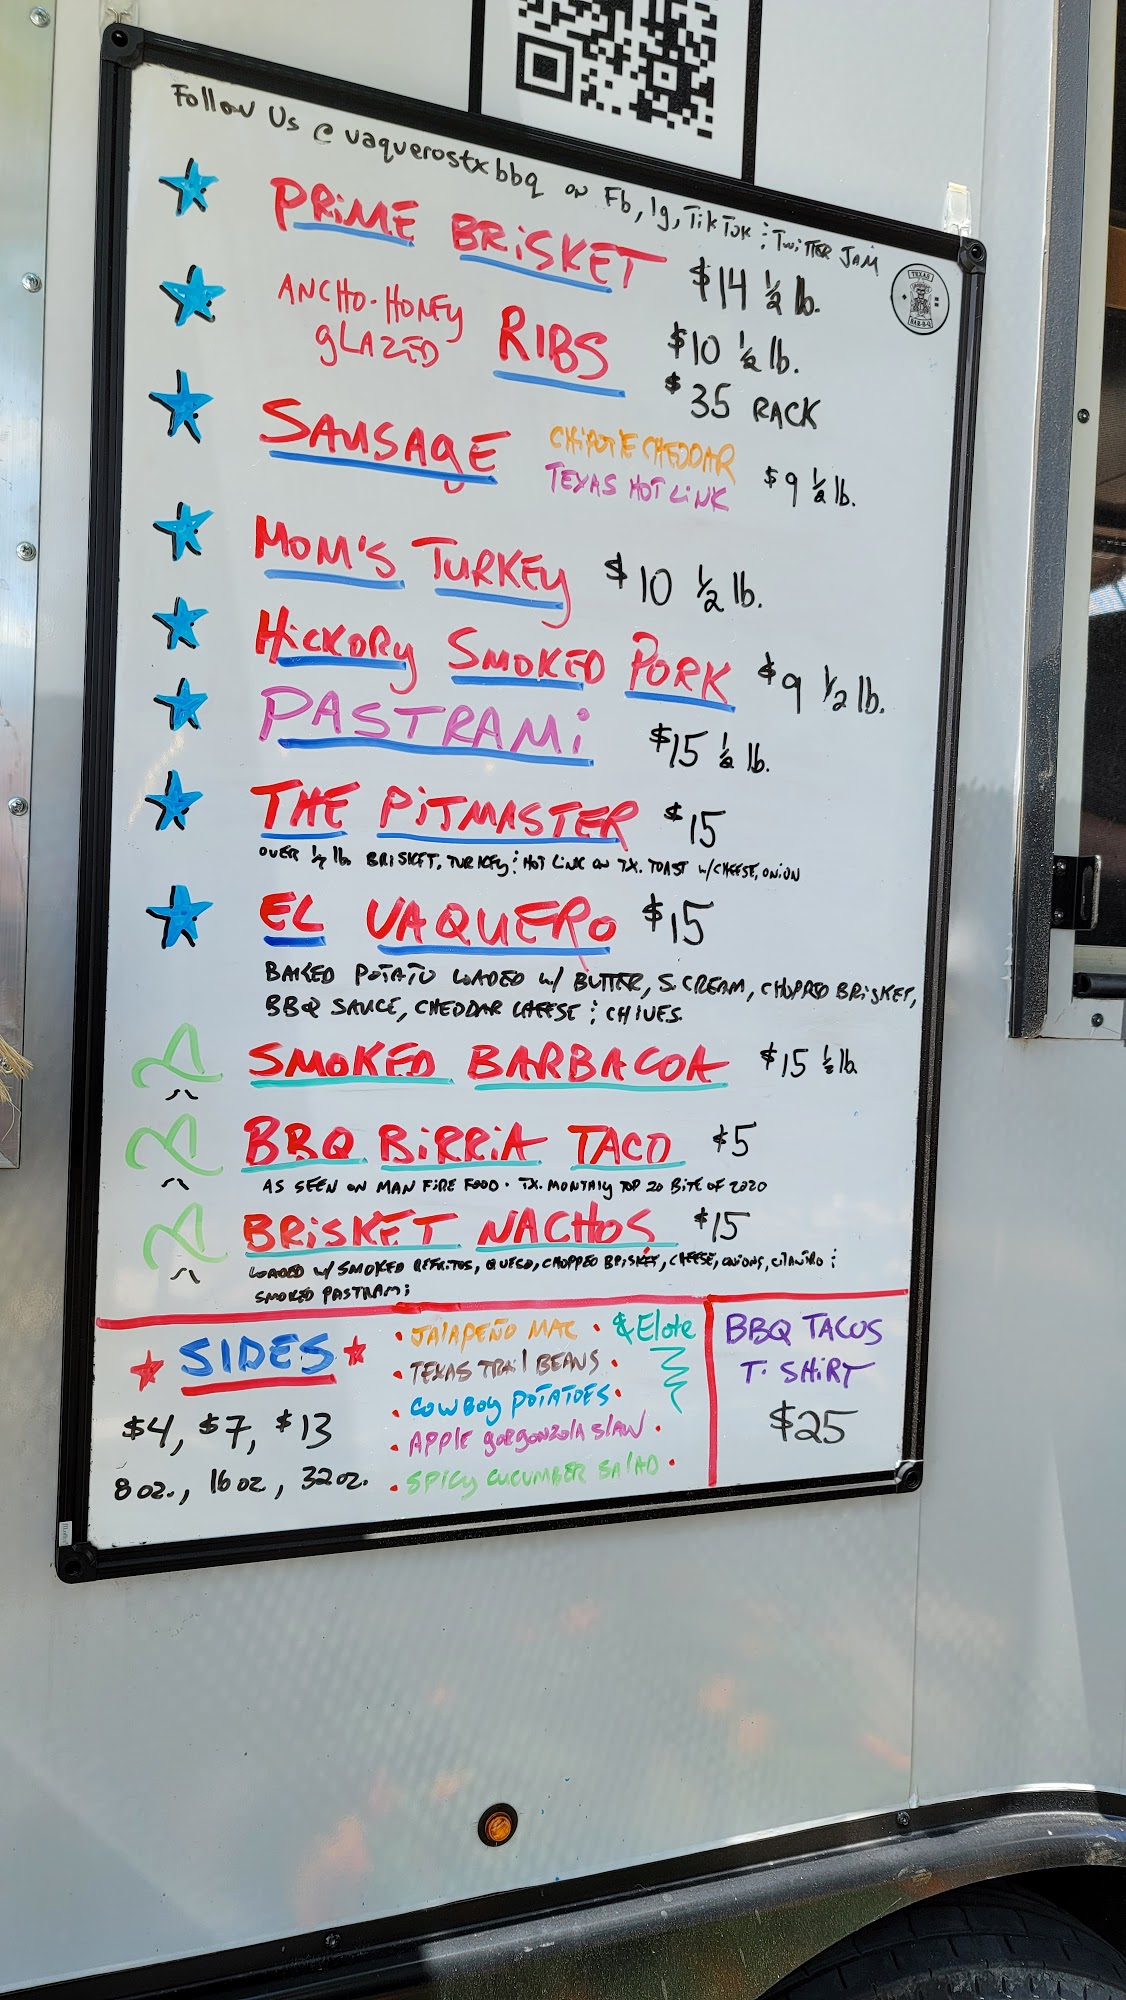 Follow Us @ vaquerostxbbq on Fb, Ig, TikTok & Twitter JAM
PRIME BRISKET $14 1/2 lb.
ANCHO-HONEY
GLAZED RIBS $10 1/2 lb.
$35 RACK
TEXAS
BAR-B-Q
SAUSAGE CHIPOTLE CHEDDAR
TEXAS HOT LINK $9 1/2 lb.
MOM'S TURKEY $10 1/2 lb.
HICKORY SMOKED PORK $9 1/2 lb.
PASTRAMI $15 1/2 lb.
THE PITMASTER $15
OVER 1/2 lb BRISKET, TURKEY & HOT LINK ON TX. TOAST w/CHEESE, ONION
EL VAQUERO $15
BAKED POTATO LOADED W/ BUTTER, S. CREAM, CHOPPED BRISKET,
BBQ SAUCE, CHEDDAR CHEESE & CHIVES
SMOKED BARBACOA $15 1/2 lb
BBQ BIRRIA TACO $5
AS SEEN ON MAN FIRE FOOD · TX. MONTHLY TOP 20 BITE OF 2020
BRISKET NACHOS $15
LOADED W/ SMOKED REFRITOS, QUESO, CHOPPED BRISKET, CHEESE, ONIONS, CILANTRO &
SMOKED PASTRAMI
SIDES
$4, $7, $13
8 oz., 16 oz, 32 oz.
· JALAPEÑO MAC · & Elote
· TEXAS TRAIL BEANS ·
· COWBOY POTATOES ·
· APPLE GORGONZOLA SLAW ·
· SPICY CUCUMBER SALAD ·
BBQ TACOS
T-SHIRT
$25